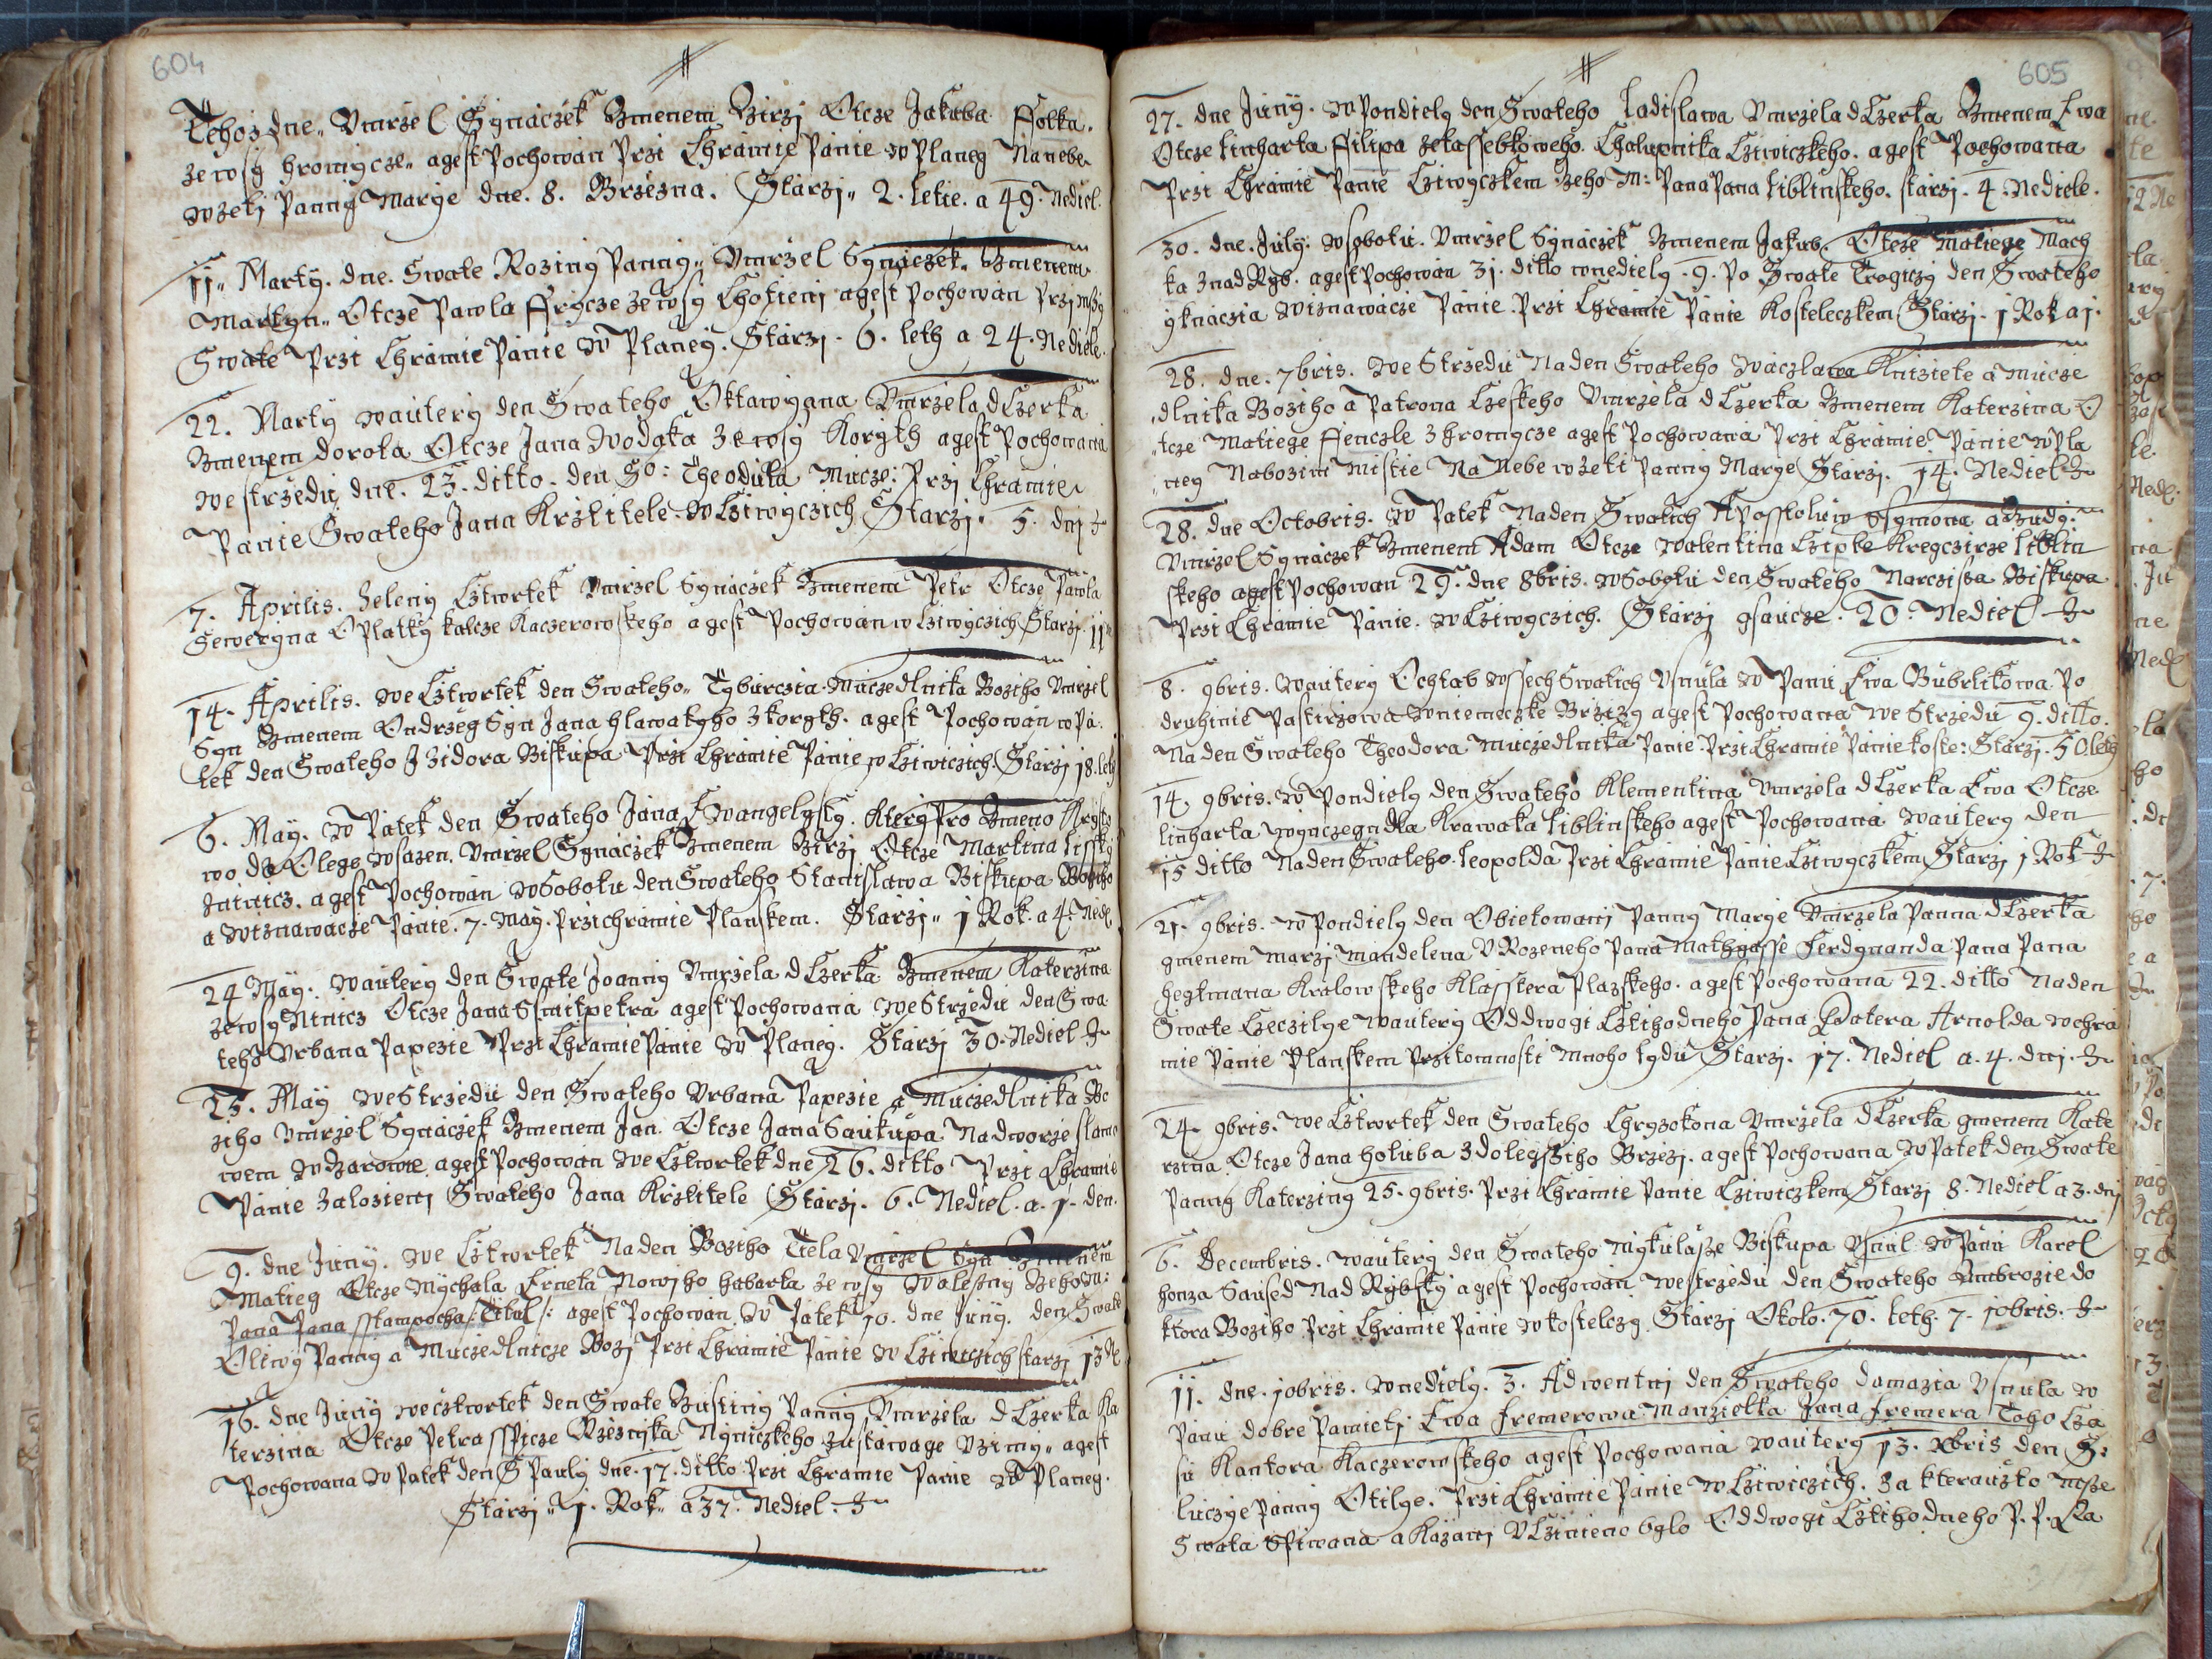 604
Tehoz dne„ Vmrzel Synáczek Gmenem Girzj Otcze Jakuba Ffolka.
ze wsy hromycze„ agest Pochowán Przi Chrámie Pánie w Planey Nanebe
wzetj Panny Marye dne. 8. Brzezna. Stárzj„ 2. letie. a 49. Nediel.
11„ Marty. dne. Swate Roziny Panny„ Vmrzel Synáczek. Gmenem
Martyn„ Otcze Pawla Frycze ze wsy Chotieni agest Pochowán Przj mssy
Swate Przi Chrámie Pánie W Planey. Stárzj. 6. leth a 24. Nediele.
22. Marty wautery den Swateho Oktawyana Vmrzela dCzerka
Gmenem dorota Otcze Jana Wodaka ze wsy Koryth agest Pochowana
we strzedu dne. 23. ditto. den So: Theodula Mucze: Przj Chramie
Panie Swateho Jana Krztitele. W Cziwyczich Starzj. 5. dnj
7. Aprilis. Zeleny Cztwrtek Vmrzel Synáczek Gmenem Petr Otcze Pawla
Seweryna Oplatky kalcze Kaczerowskeho agest Pochowán w Cziwyczich Starzj. 11
14. Aprilis. we Cztwrtek den Swateho„ Tyburczia Muczedlnika Boziho Vmrzel
Syn Gmenem Ondrzeg Syn Jana hlawatyho z koryth. agest Pochowán w Pá-
tek den Swateho Izidora Biskupa Przi Chrámie Pánie w Cziwiczich. Starzj 18. leth
6. May. W Pátek den Swateho Jana Ewangelysty. Ktery Pro Gmeno Krysto
wo do Olege wsazen. Vmrzel Synáczek Gmenem Girzj Otcze Martina lissky
. agest Pochowán w Sobotu den Swateho Stanislawa Biskupa
a wiznawacze Pánie. 7. May. Przi chrámie Planskem. Stárzj„ 1 Rok. a 4. Nedl.
24 May. wautery den Swate Joanny Vmrzela dCzerka Gmenem Katerzina
ze wsy Ninicz Otcze Jana Ssmitpetra agest Pochowana we Strzedu den Swa
teho Vrbana Papezie Przi Chramie Panie W Planey. Stárzj 30. Nediel
25. May we Strzedu den Swateho Vrbana Papezie a Muczedlnika Bo
ziho Vmrzel Synáczek Gmenem Jan. Otcze Jana Saukupa Na dworze
wem agest Pochowán we Cztwrtek dne 26. ditto Przi Chramie
Pánie Zalozieni Swateho Jana Krztitele Stárzj. 6. Nediel. a. 1. den.
9. dne Juny. we Cztwrtek Na den Boziho Tiela Vmrzel Syn Gmenem
Matieg Otcze Mychala Nowiho ze wsy Geho M:
Pana Pana sstampacha Titul: agest Pochowán. W Pátek 10. dne Juny. den Swate
Oliwy Panny a Muczedlnicze Bozj Przi Chrámie Pánie W Cziwiczich starzj 13
16. dne Juny wecztwrtek den Swate Justiny Panny, Vmrzela dCzerka Ka
terzina Otcze Petra sspicze Rzeznjka agest
Pochowana W Patek den S Pauly dne. 17. ditto Przi Chramie Panie W Planey.
Stárzj„ 1. Rok„ a 37. Nediel
605
27. dne Juny. W Pondiely den Swateho ladislawa Vmrzela dCzerka Gmenem Ewa
Otcze linharta Ffilipa Chalupnika Cziwiczkeho. agest Pochowana
Przi Chramie Panie Cziwyczkem Geho M: Pana Pana liblinskeho. starzj. 4. Nediele.
30. dne. July. w sobotu. Vmrzel Synáczek Gmenem Jakub. Otcze Matiege Mach
ka Znad Ryb. agest Pochowán 31. ditto wnediely. 9. Po Swate Trogiczy den Swateho
ygnaczia wiznawacze Pánie. Przi Chrámie Pánie Kosteleczkem Starzj. 1 Rok a 1.
28. dne. 7bris. we Strzedu Na den Swateho waczlawa Knizete a mucze
dlnika Boziho a Patrona Czeskeho Vmrzela dCzerka Gmenem Katerzina O
tcze Matiege Fienczle z hromycze agest Pochowana Przi Chramie Panie w Pla
ney Na bozim Mistie Na Nebe wzeti Panny Marye Starzj. 14. Nediel
28. dne Octobris. W Patek Na den Swatich Aposstoluw Ssymona a Judy.
Vmrzel Synáczek Gmenem Adam Otcze Walentina Cziple Kregczirze liblin
skeho agest Pochowan 29. dne 8bris. w Sobotu den Swateho Narczissa Biskupa
Przi Chramie Panie. w Cziwyczich. Starzj gsaucze. 20. Nediel
8. 9bris. wautery Ochtab wssech Swatich Vsnula w Panu Ewa Bubrlikowa Po
druhinie Pastirzowa wniemeczke Brziezy agest Pochowana we Strzedu 9. ditto.
Na den Swateho Theodora Muczedlnika Panie Przi Chramie Panie koste: Starzj. 50 leth
14. 9bris. w Pondiely den Swateho Klementina Vmrzela dCzerka Ewa Otcze
linharta Krawaka liblinskeho agest Pochowana wautery den
15 ditto Na den Swateho leopolda Przi Chramie Panie Cziwyczkem Starzj 1 Rok
21. 9bris. w Pondiely den Obietowanj Panny Marye Vmrzela Panna dCzerka
gmenem Marzj Mandelena VRozeneho Pana Mathyasse Ferdynanda Pana Pana
hegtmana Kralowskeho Klasstera Plaskeho. agest Pochowana 22. ditto Na den
Swate Czeczilye wautery Oddwogi Cztihodneho Pana Patera Arnolda w chra
mie Panie Planskem Przitomnosti Mnoho lydu Starzj. 17. Nediel a. 4. dnj.
24. 9bris. we Cztwrtek den Swateho Chryzokona Vmrzela dCzerka gmenem Kate
rzina Otcze Jana holuba z dolegssiho Brzezj. agest Pochowana w Patek den Swate
Panny Katerziny 25. 9bris. Przi Chramie Panie Cziwiczkem Starzj 8. Nediel a 3. dnj
6. Decembris. wautery den Swateho Mykulasse Biskupa Vsnul w Panu Karel
honza Saused Nad Rybsky agest Pochowan westrzedu den Swateho Ambrozie do
ktora Boziho Przi Chramie Panie w kostelczy. Stárzj Okolo. 70. leth. 7. 10bris.
11. dne. 10bris. wnediely. 3. Adwentnj den Swateho damazia Vsnula w
Panu dobre Pamieti Ewa Fremerowa Manzielka Jana Fremera Toho Cza
su Kantora Kaczerowskeho agest Pochowana wautery 13. Xbris den S:
luczye Panny Otilye. Przi Chrámie Pánie w Cziwiczich. Za kterauzto Msse
Swata Spiwana a Kazani Vczinieno bylo Oddwogi Cztihodneho P. P. Ka